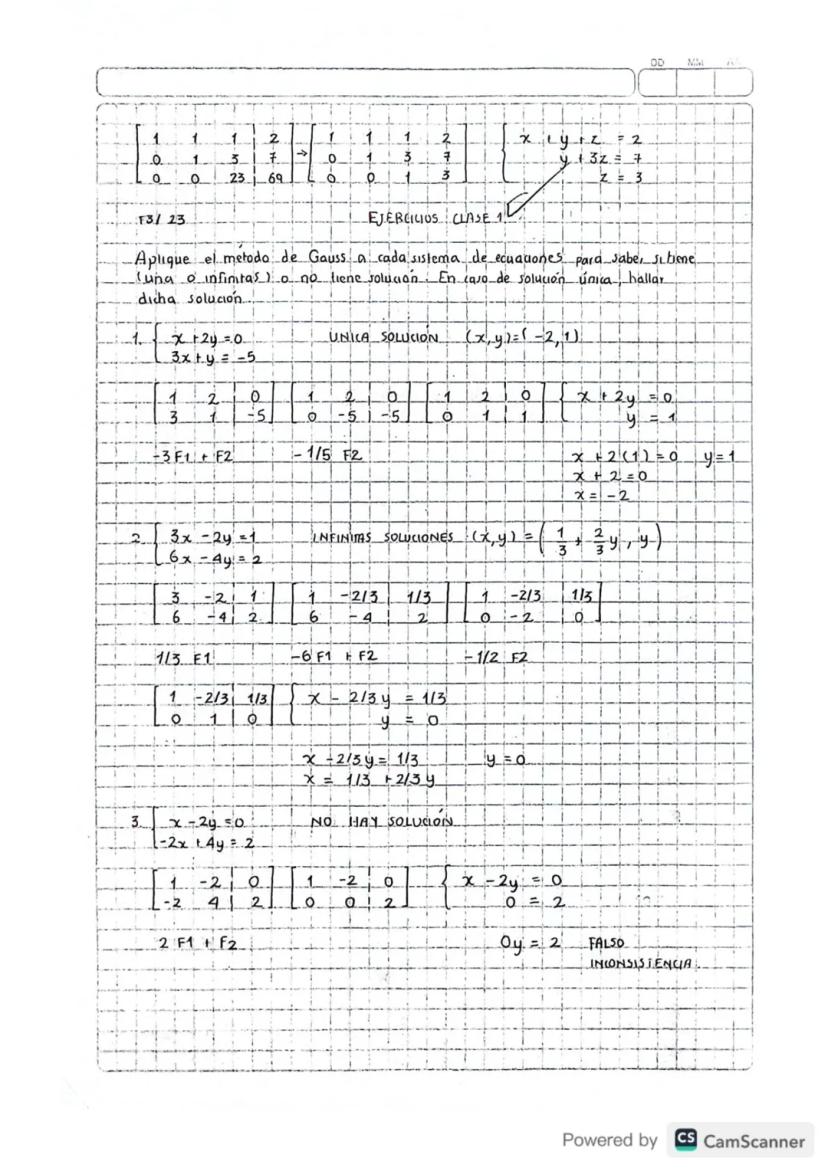 DD MM AA
1 1 1 2 → 1 1 1 2 { x + y + z = 2
0 1 3 7 0 1 3 7 y + 3z = 7
0 0 23 69 0 0 1 3 z = 3
F3/23 EJERCICIOS CLASE 1
Aplique el método de Gauss a cada sistema de ecuaciones para saber si tiene
(una o infinitas) o no tiene solución. En caso de solución única, hallar
dicha solución.
1. { x + 2y = 0 UNICA SOLUCIÓN (x,y)=(-2,1)
3x + y = -5
1 2 0 1 2 0 1 2 0 { x + 2y = 0
3 1 -5 0 -5 -5 0 1 1 y = 1
-3F1 + F2 -1/5 F2 x + 2(1) = 0 y = 1
x + 2 = 0
x = -2
2. { 3x - 2y = 1 INFINITAS SOLUCIONES (x,y) = (1/3 + 2/3 y, y)
6x - 4y = 2
3 -2 1 1 -2/3 1/3 1 -2/3 1/3
6 -4 2 6 -4 2 0 -2 0
1/3 F1 -6F1 + F2 -1/2 F2
1 -2/3 1/3 { x - 2/3y = 1/3
0 1 0 y = 0
x - 2/3y = 1/3 y = 0
x = 1/3 + 2/3y
3. { x - 2y = 0 NO HAY SOLUCIÓN
-2x + 4y = 2
1 -2 0 1 -2 0 { x - 2y = 0
-2 4 2 0 0 2 0 = 2
2F1 + F2 0y = 2 FALSO
INCONSISTENCIA
Powered by CS CamScanner